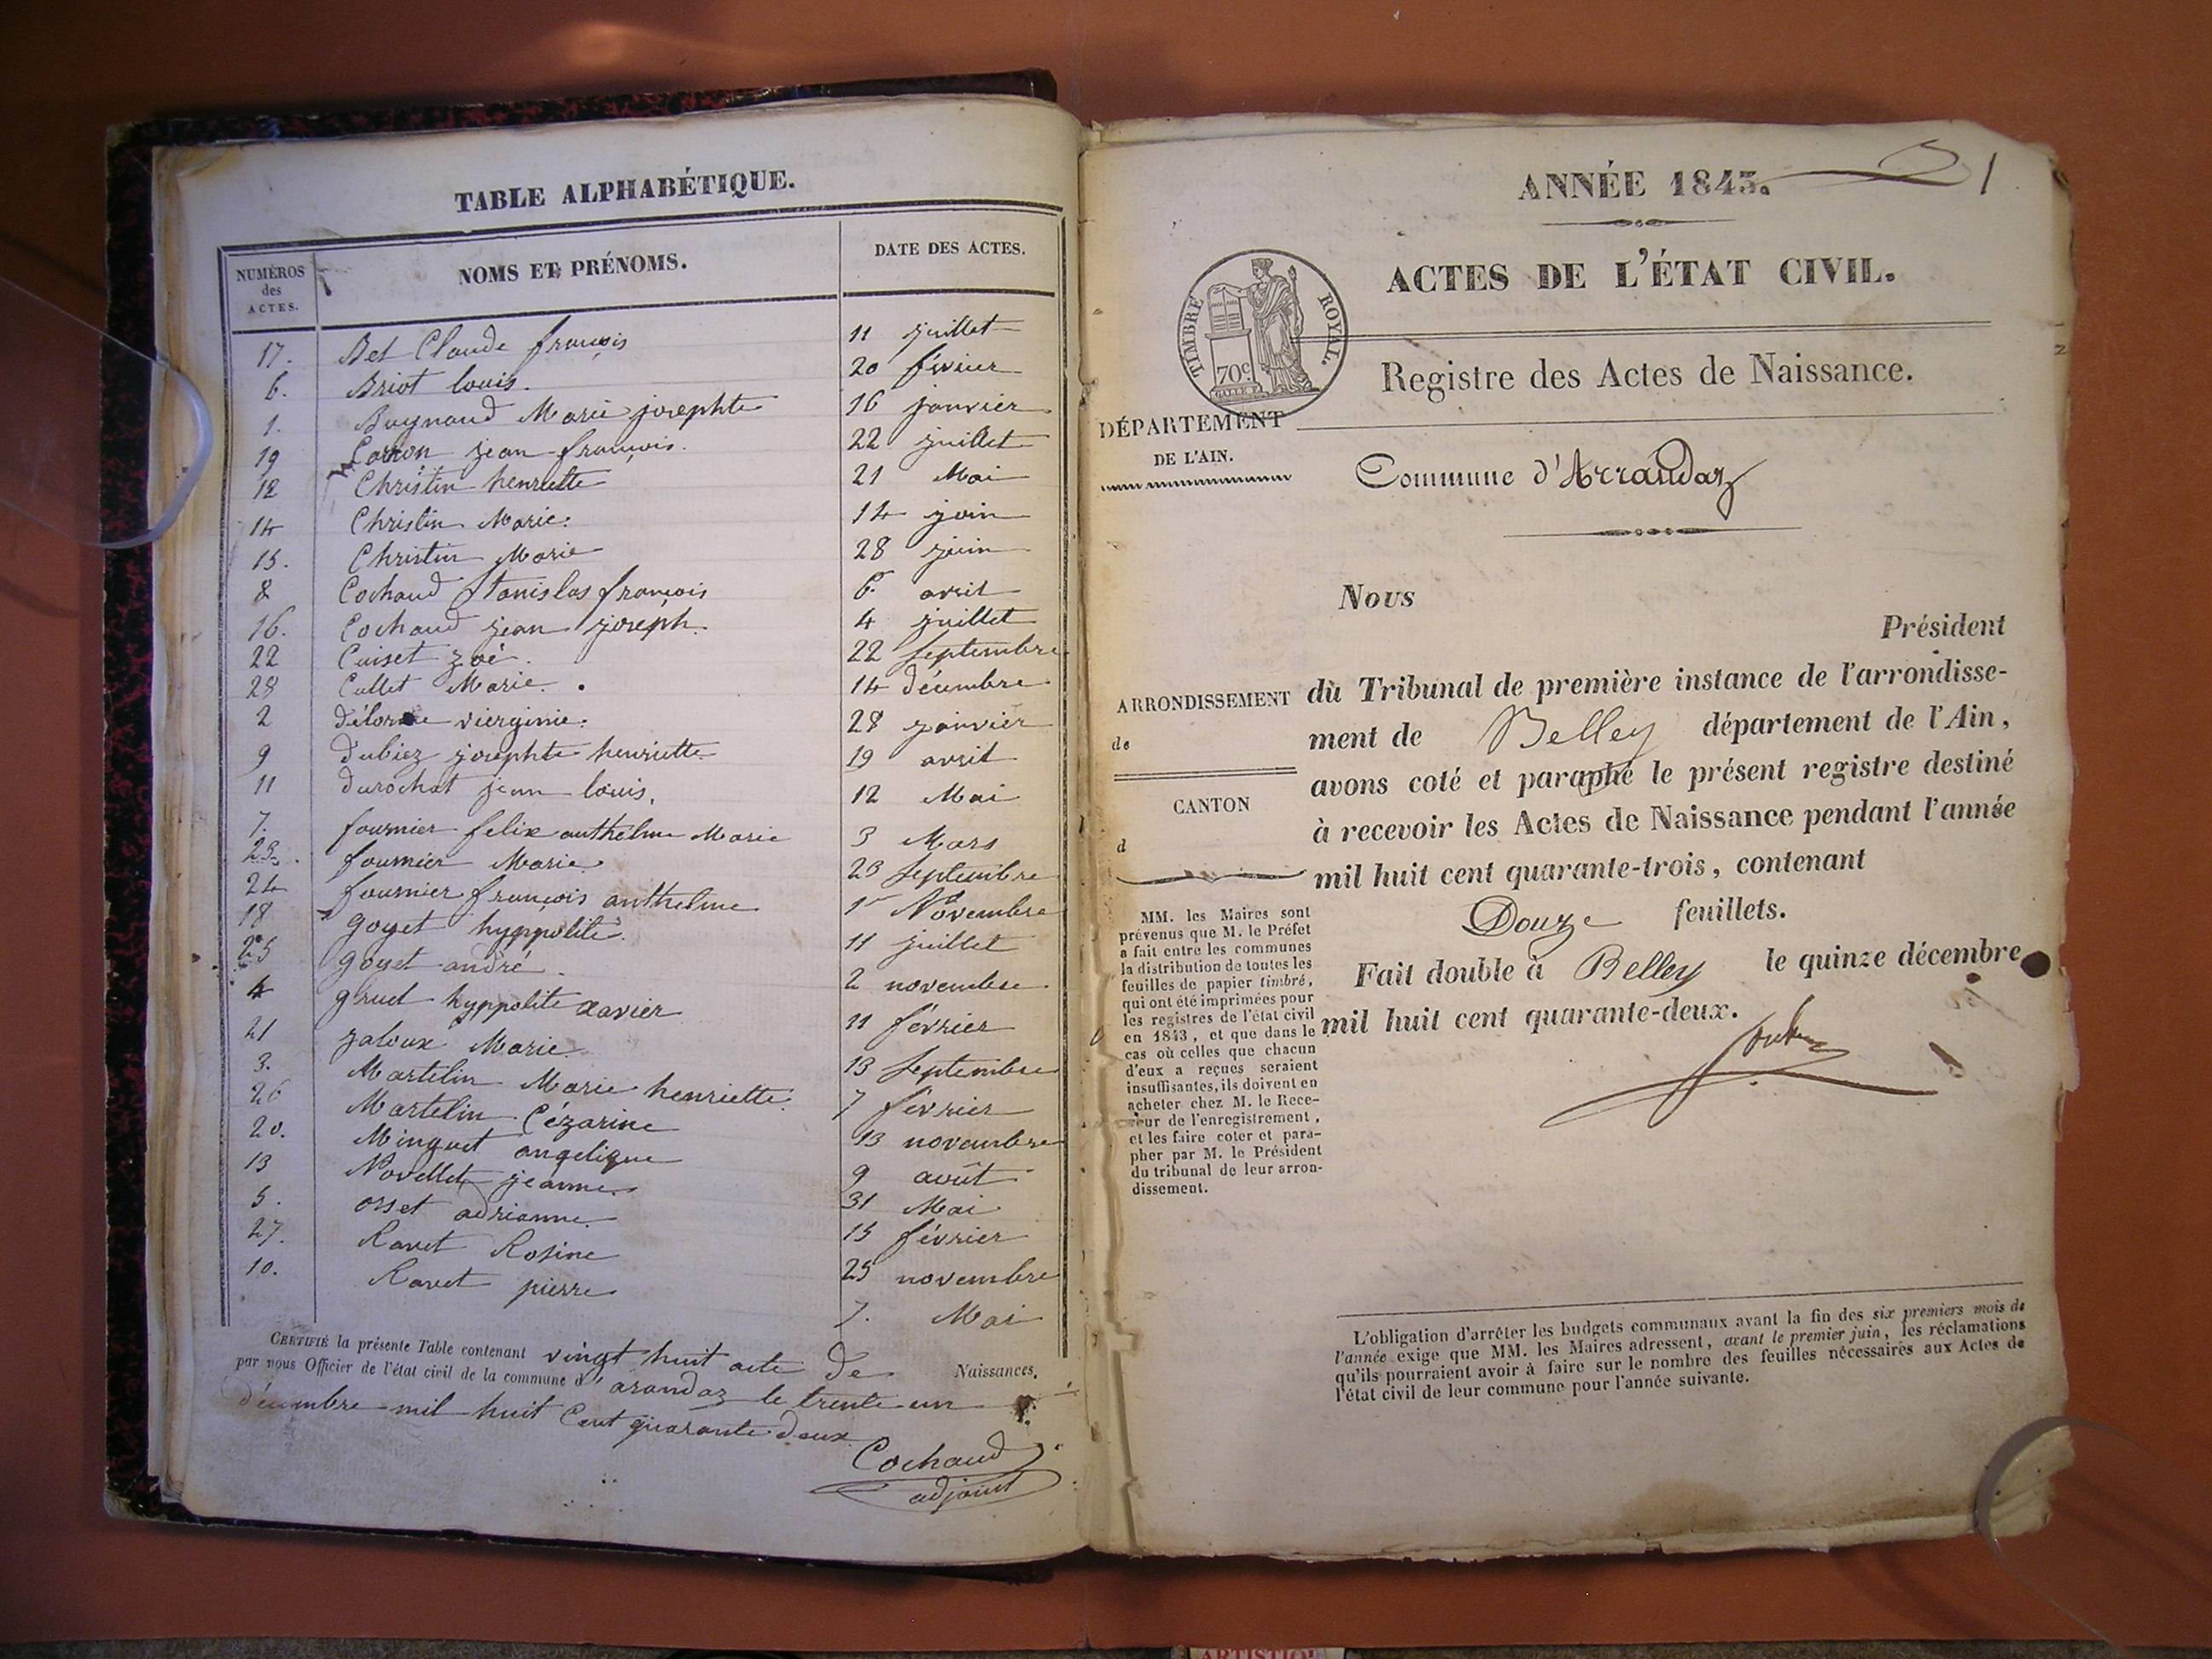 TABLE ALPHABÉTIQUE.
NUMÉROS des ACTES. NOMS ET PRÉNOMS. DATE DES ACTES.
17. Bet Claude françois 11 juillet
6. Briot louis. 20 février
1. Buynaud Marie josephte 16 janvier
19 Carron jean françois. 22 juillet
12 Christin henriette 21 Mai
14 Christin Marie. 14 juin
15. Christin Marie 28 juin
8 Cochaud Stanislas françois 6. avril
16. Cochaud jean joseph. 4 juillet
22 Cuiset zoé. 22 Septembre
28 Cullet Marie. 14 décembre
2 délorme vierginie. 28 janvier
9 dubiez josephte henriette 19 avril
11 durochat jean louis. 12 Mai
7. fournier felix anthelme Marie 3 Mars
23. fournier Marie 23 Septembre
24 fournier françois anthelme 1r Novembre
18 goyet hyppolite. 11 juillet
25 goyet andré. 2 novembre
4 gruet hyppolite xavier 11 février
21 jaloux Marie 13 Septembre
3. Martelin Marie henriette. 7 février
26 Martelin Cézarine 13 novembre
20. Minguet angelique 9 août
13 Novellet jeanne 31 Mai
5. orset adrianne. 15 février
27. Ravet Rosine 25 novembre
10. Ravet pierre 7. Mai
CERTIFIÉ la présente Table contenant vingt huit acte de Naissances,
par nous Officier de l'état civil de la commune d'arandaz le trente un
décembre mil huit Cent quarante deux.
Cochaud
adjoint
1
ANNÉE 1843.
ACTES DE L'ÉTAT CIVIL.
TIMBRE ROYAL.
70c
Registre des Actes de Naissance.
DÉPARTEMENT
DE L'AIN.
Commune d'Arrandaz
Nous
Président
ARRONDISSEMENT
de
CANTON
d
du Tribunal de première instance de l'arrondisse-
ment de Belley département de l'Ain,
avons coté et paraphé le présent registre destiné
à recevoir les Actes de Naissance pendant l'année
mil huit cent quarante-trois, contenant
Douze feuillets.
Fait double à Belley le quinze décembre
mil huit cent quarante-deux.
MM. les Maires sont
prévenus que M. le Préfet
a fait entre les communes
la distribution de toutes les
feuilles de papier timbré,
qui ont été imprimées pour
les registres de l'état civil
en 1843, et que dans le
cas où celles que chacun
d'eux a reçues seraient
insuffisantes, ils doivent en
acheter chez M. le Rece-
veur de l'enregistrement,
et les faire coter et para-
pher par M. le Président
du tribunal de leur arron-
dissement.
L'obligation d'arrêter les budgets communaux avant la fin des six premiers mois de
l'année exige que MM. les Maires adressent, avant le premier juin, les réclamations
qu'ils pourraient avoir à faire sur le nombre des feuilles nécessaires aux Actes de
l'état civil de leur commune pour l'année suivante.